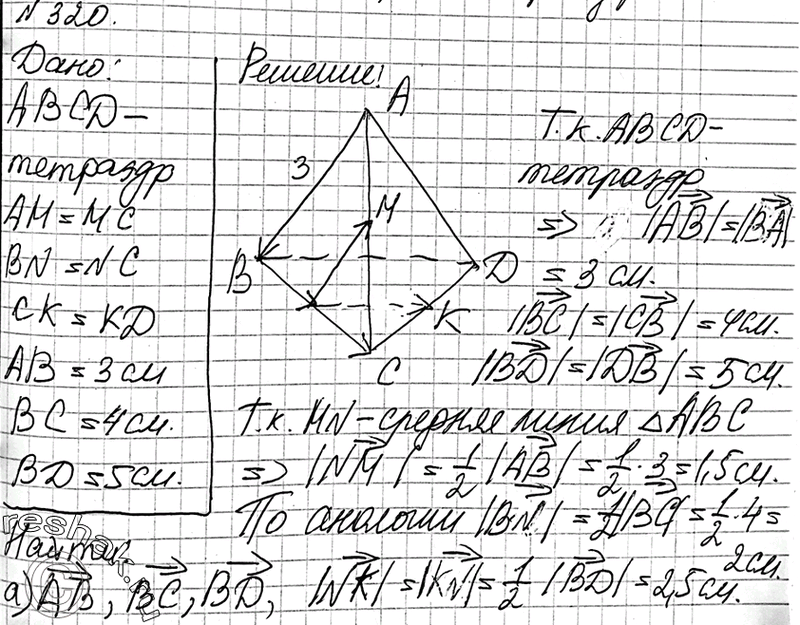 N 320.
Дано:
ABCD –
тетраэдр
AM = MC
BN = NC
CK = KD
AB = 3 см
BC = 4 см.
BD = 5 см.
Найти:
а) AB, BC, BD,
Решение:
A
3
M
B
D
K
C
Т.к. ABCD –
тетраэдр
=> |AB| = |BA|
= 3 см.
|BC| = |CB| = 4 см.
|BD| = |DB| = 5 см.
Т.к. MN – средняя линия △ABC
=> |NM| = 1/2 |AB| = 1/2 · 3 = 1,5 см.
По аналогии |BN| = 1/2 |BC| = 1/2 · 4 =
2 см.
|NK| = |KN| = 1/2 |BD| = 2,5 см.